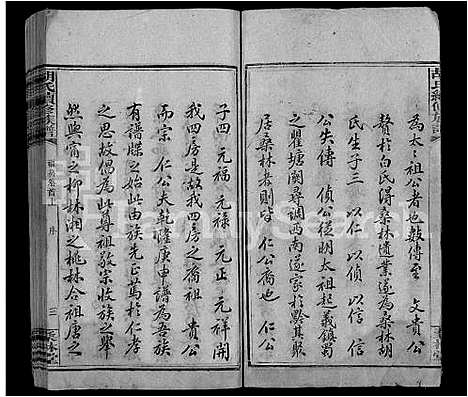 胡氏續修族譜
為太太祖公者也數傳至　文貴公
贅於白氏得桑林遺業遂為桑林胡
氏生子三　以仁　以偵　以信　信
公失傳　偵公從明太祖起義鎮蜀
之瞿塘關尋調西南遂家於黔其蜀
居桑林者則皆　仁公裔也　仁公
子四　元福　元祿　元正　元祥開
我四房是故我四房之裔祖　貴公
而宗　仁公夫乾隆庚申譜為吾族
有譜牒之始此由族先正篤於仁孝
之思故倡為尊祖敬宗收族之舉
然與甯之柳林湘之桃林合祖唐之
胡氏續修族譜
卷首上　序
三　桑林堂